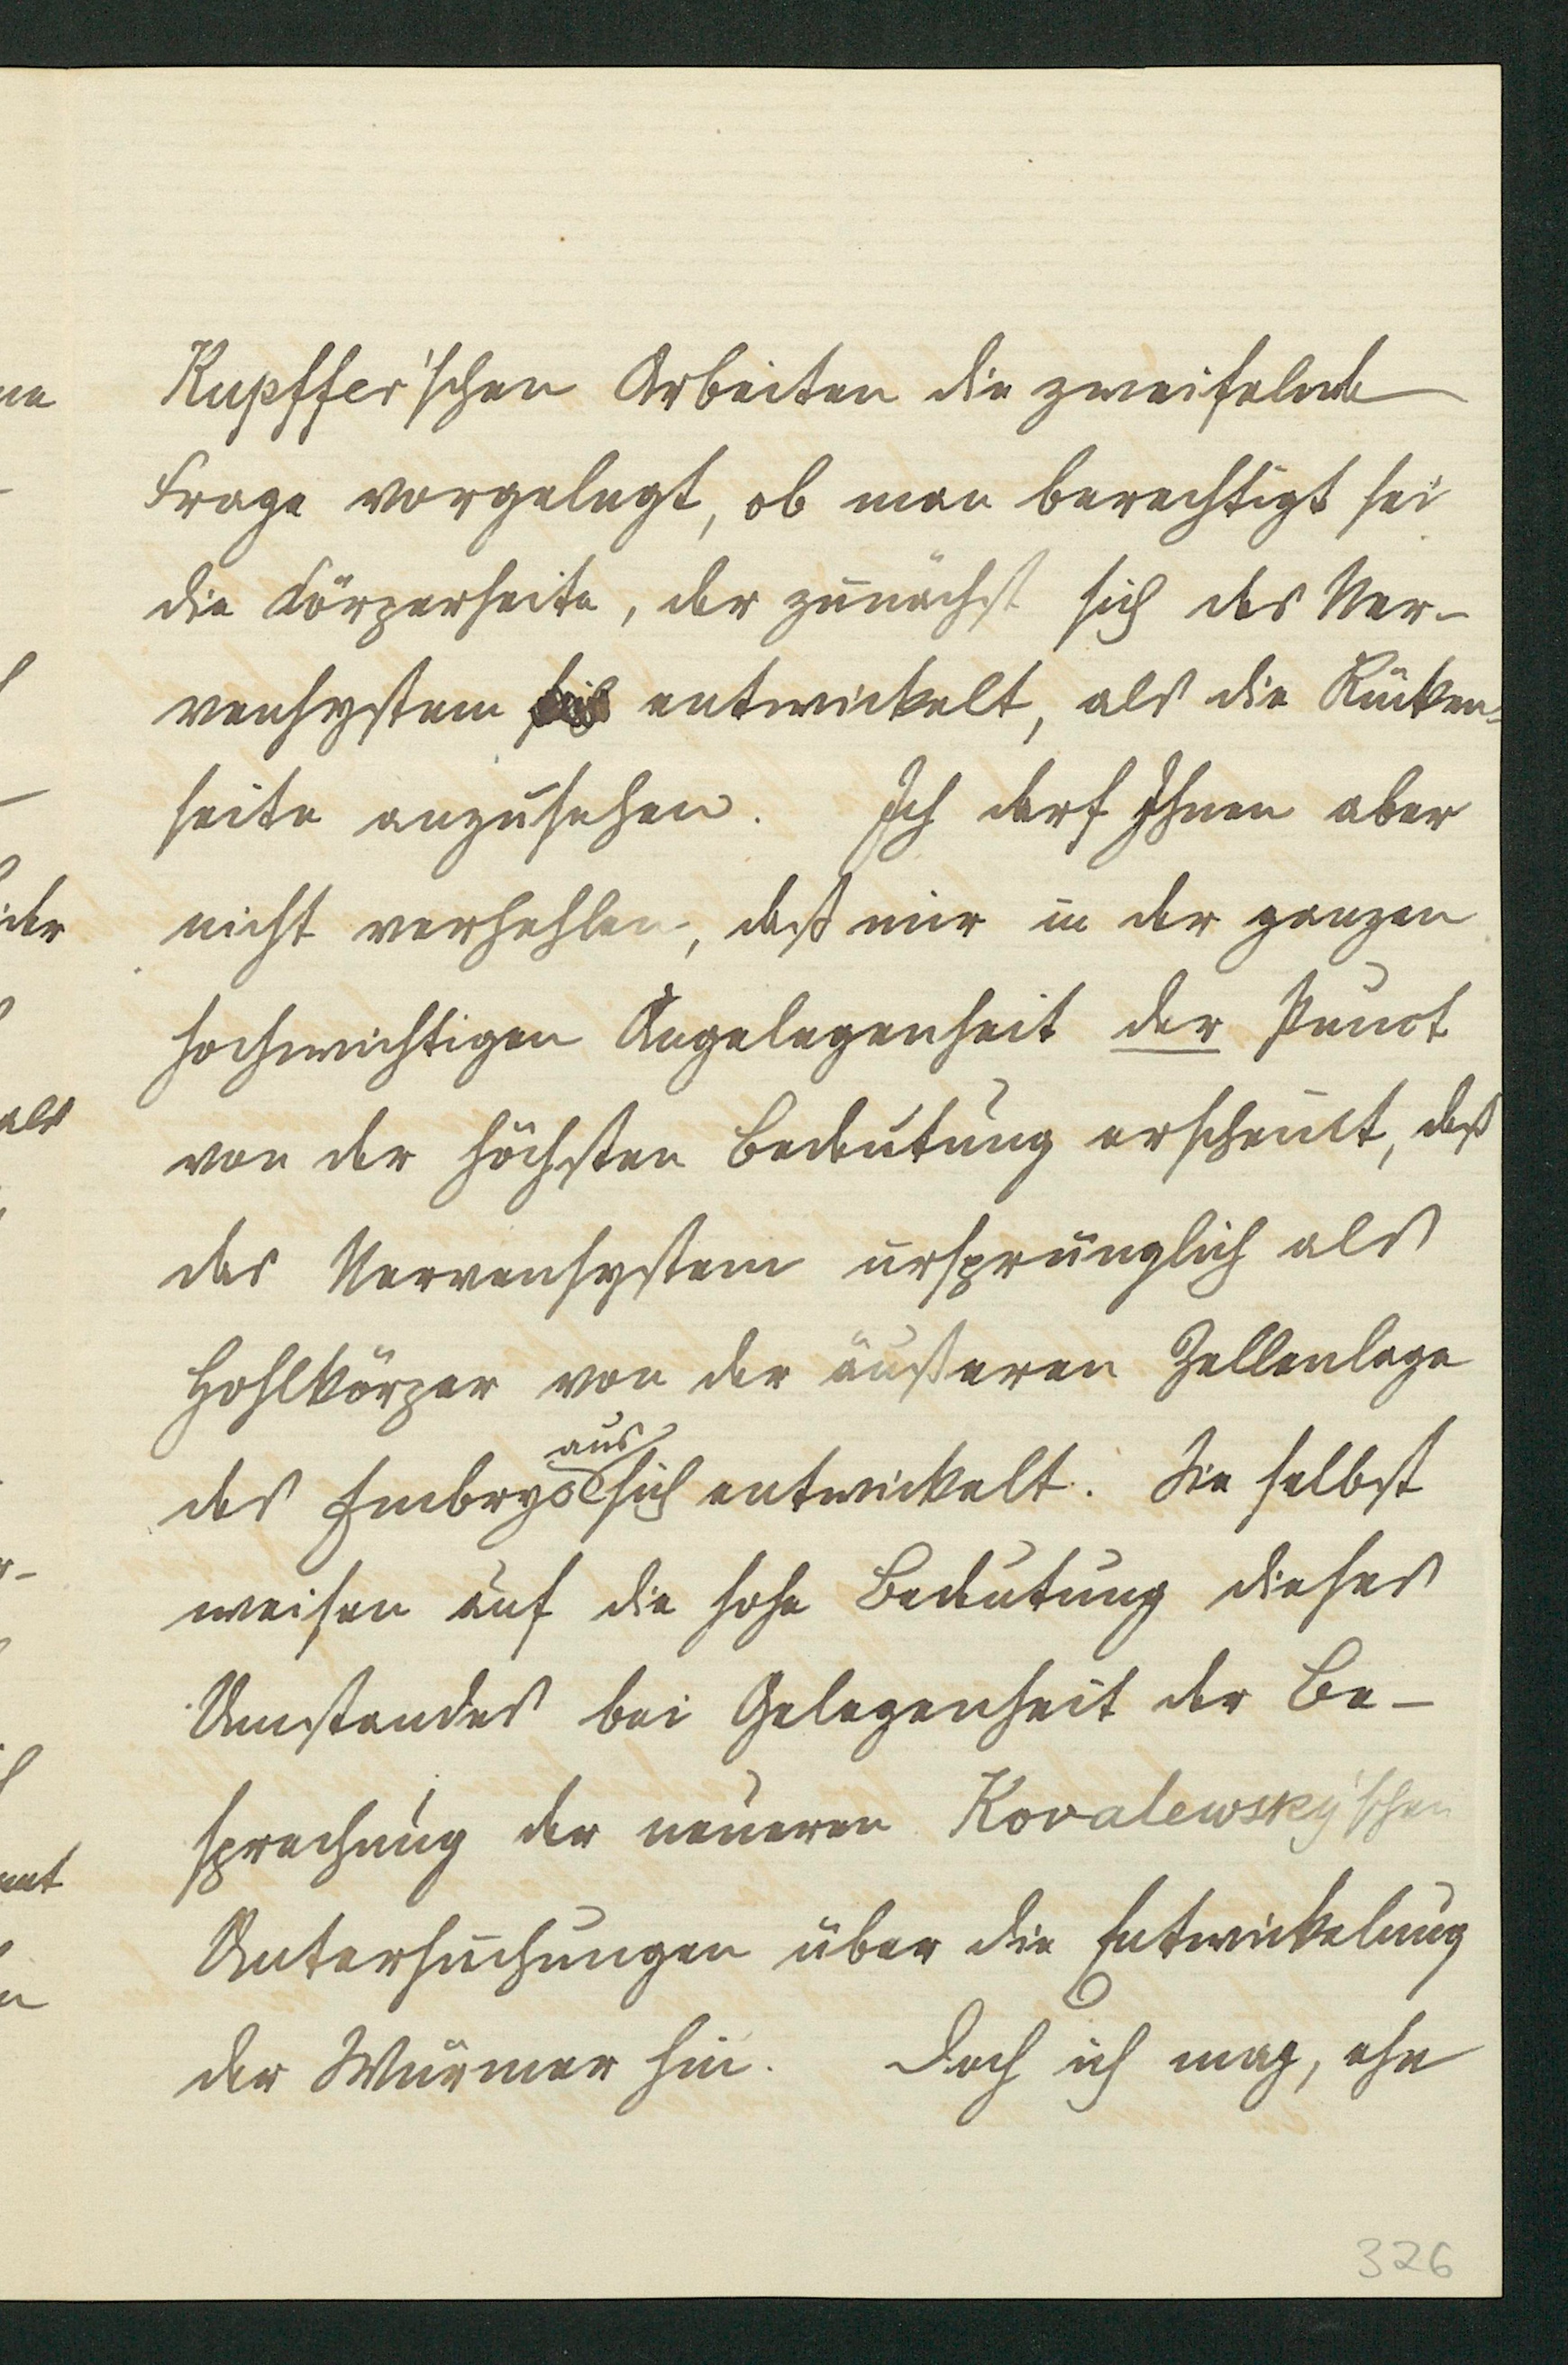 Kupffer'schen Arbeiten die zweifelnde
Frage vorgelegt, ob man berechtigt sei
die Körperseite, der zunächst sich das Ner-
vensystem entwickelt, als die Rücken-
seite anzusehen. Ich darf Ihnen aber
nicht verhehlen, daß mir in der ganzen
hochwichtigen Angelegenheit der Punct
von der höchsten Bedeutung erscheint, daß
das Nervensystem ursprünglich als
Hohlkörper von der äußeren Zellenlage
aus
des Embryos sich entwickelt. Sie selbst
weisen auf die hohe Bedeutung dieses
Umstandes bei Gelegenheit der Be-
sprechung der neueren Kovalewsky'schen
Untersuchungen über die Entwickelung
der Würmer hin. Doch ich mag, ehe
326